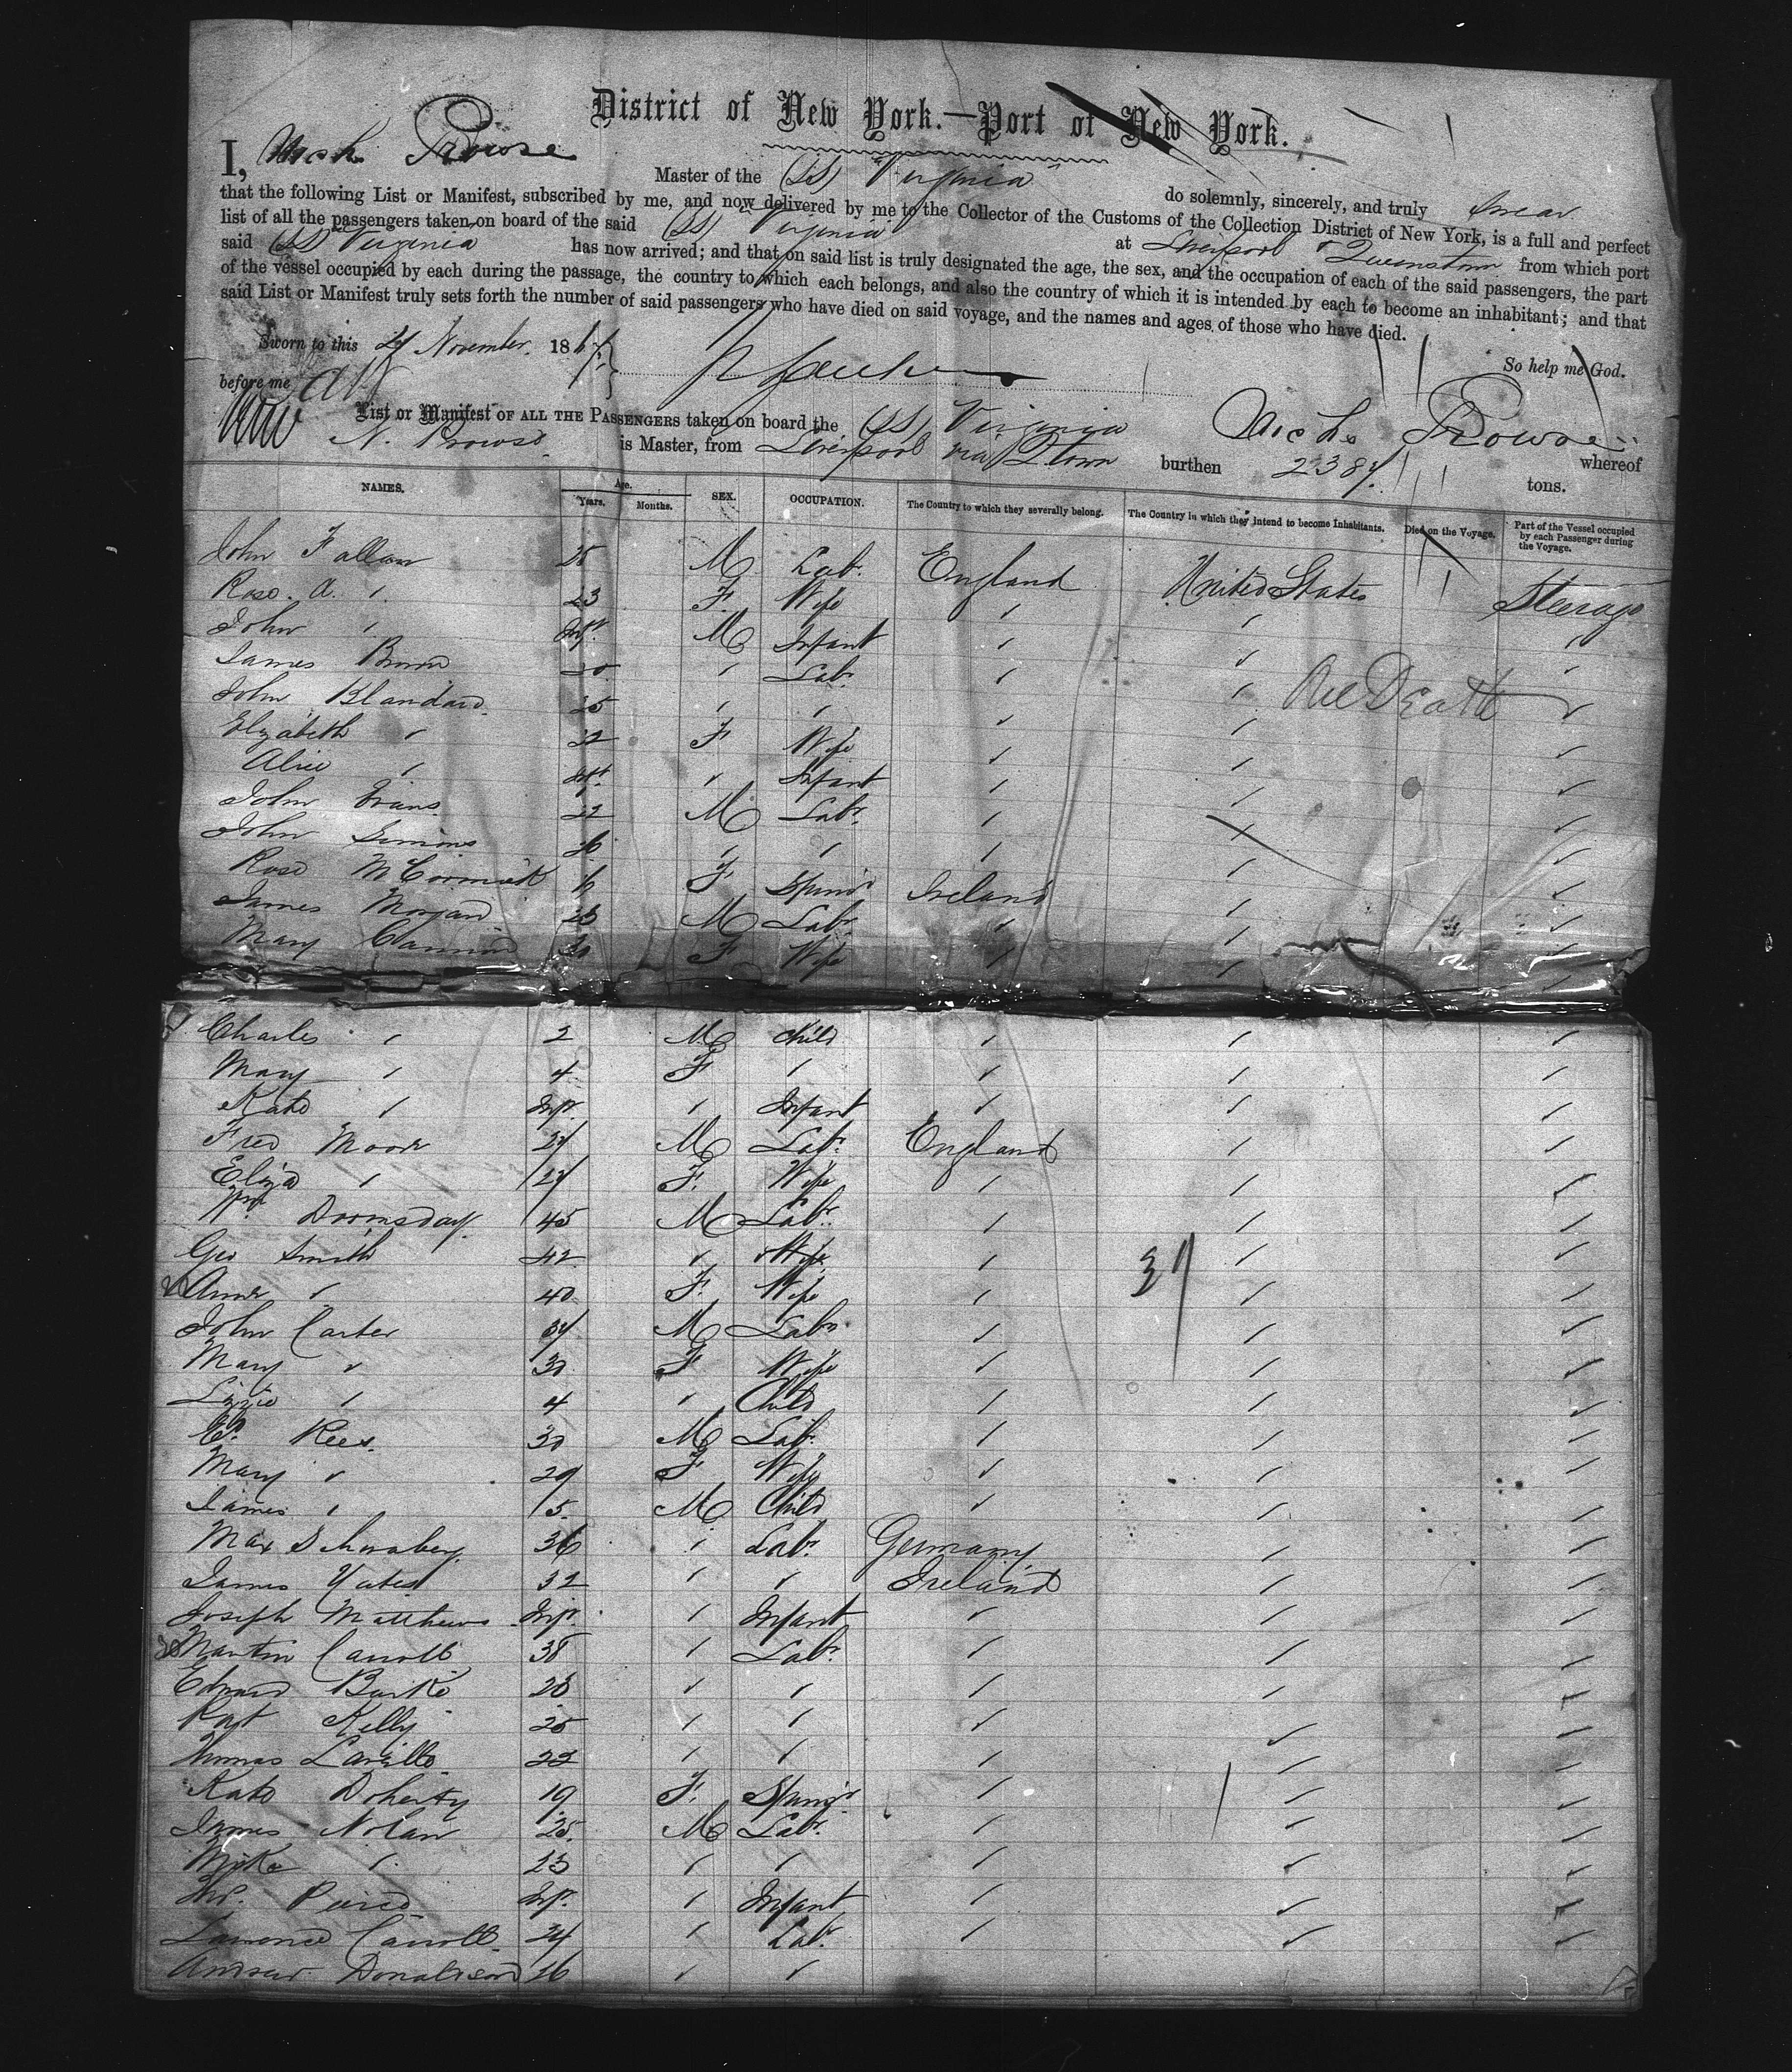 District of New York.—Port of New York.
I, Nich Prowse Master of the (SS) "Virginia" do solemnly, sincerely, and truly swear
that the following List or Manifest, subscribed by me, and now delivered by me to the Collector of the Customs of the Collection District of New York, is a full and perfect
list of all the passengers taken on board of the said (SS) Virginia at Liverpool & Queenstown from which port
said (SS) Virginia has now arrived; and that on said list is truly designated the age, the sex, and the occupation of each of the said passengers, the part
of the vessel occupied by each during the passage, the country to which each belongs, and also the country of which it is intended by each to become an inhabitant; and that
said List or Manifest truly sets forth the number of said passengers who have died on said voyage, and the names and ages of those who have died.
Sworn to this November 186 So help me God.
before me
List or Manifest OF ALL THE PASSENGERS taken on board the (SS) Virginia Nichs Prowse whereof
N. Prowse is Master, from Liverpool via Qtown burthen 2387. tons.
NAMES. Age. Years. Months. SEX. OCCUPATION. The Country to which they severally belong. The Country in which they intend to become Inhabitants. Died on the Voyage. Part of the Vessel occupied by each Passenger during the Voyage.
John Fallan 25 M Labr. England United States Steerage
Rose. A. " 23 F. Wife " " "
John " Inft. M Infant " " "
James Brown 20 " Labr. " " "
No Death
John Blandard 25 " " " " "
Elizabeth " 22 F Wife " " "
Alice " Inft. " Infant " " "
John Evans 22 M Labr. " " "
John Simons 26 " " " " "
Rose McCormick 16 F Spinsr Ireland " "
James Morgan 23 M Labr. " " "
Mary Cannon 30 F Wife " " "
Charles " 2 M Child " " "
Mary " 4 F " " " "
Kate " Inft. " Infant " " "
Fred Moore 27 M Labr. England " "
Eliza " 27 F. Wife " " "
Wm Doomsday 45 M Labr. " " "
Geo Smith 42 " Wife " " "
Anne " 40 F. Wife " " "
John Carter 34 M Labr. " " "
Mary " 30 F Wife " " "
Lizzie " 4 " Child " " "
Rees. 30 M Labr. " " "
Mary " 29 F Wife " " "
James " 5. M Child " " "
Max 36 " Labr. Germany "
James Yates 32 " " Ireland " "
Joseph Matthews Inft. " Infant " " "
Martin Carroll 38 " Labr. " " "
Edward Burke 28 " " " " "
Pat Kelly 25 " " " " "
Thomas 22 " " " " "
Kate Doherty 19 F. Spinsr " " "
James Nolan 25. M Labr. " " "
Mike " 23 " " " " "
Inft. " Infant " " "
Lawrence Carroll 24 " Labr. " " "
Andrew Donaldson 26 " "